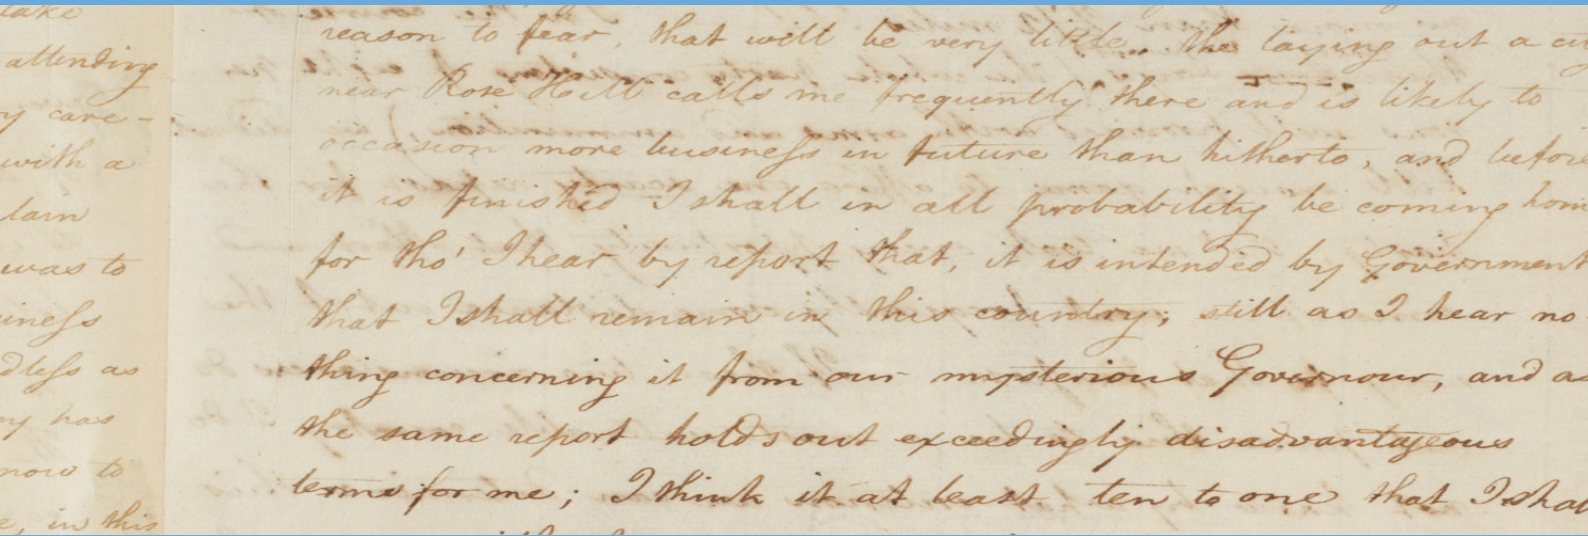 take
attending
y care -
with a
lain
was to
iness
dless as
ey has
now to
e, in this
reason to fear, that will be very little. The laying out a
near Rose Hill calls me frequently there and is likely to
occasion more business in future than hitherto, and before
it is finished I shall in all probability be coming home
for tho' I hear by report that, it is intended by Government
that I shall remain in this country; still as I hear no
thing concerning it from our mysterious Governour, and as
the same report holds out exceedingly disadvantageous
terms for me; I think it at least ten to one that I shal